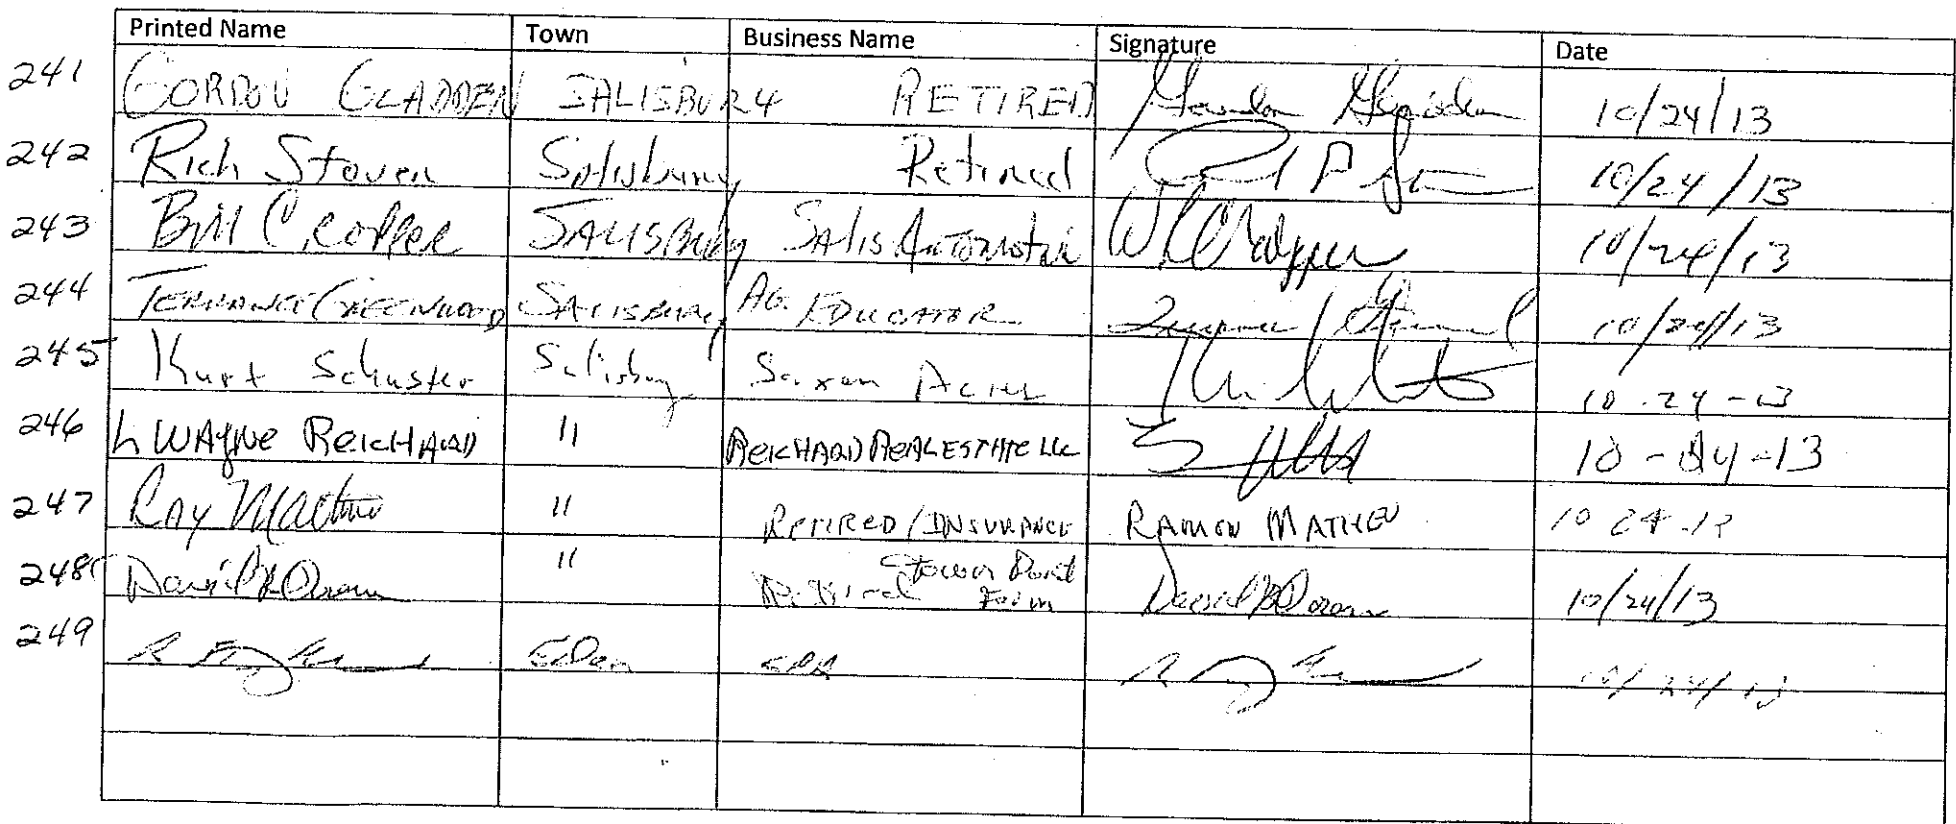 Printed Name Town Business Name Signature Date
241 GORDON GLADDEN SALISBURY RETIRED Gordon Gladden 10/24/13
242 Rich Stover Salisbury Retired 10/24/13
243 Bill Cropper SALISBURY SALIS AUTOMOTIVE 10/24/13
244 TERRANCE GREENWOOD SALISBURY AG. EDUCATOR 10/24/13
245 Kurt Schuster Salisbury Saxon Acres 10-24-13
246 L WAYNE REICHARD " REICHARD REAL ESTATE LLC 10-24-13
247 RAY " RETIRED/INSURANCE RAMON MATHEU 10 24-13
248 David " Retired Farm 10/24/13
249 Eden CPA 10/24/13